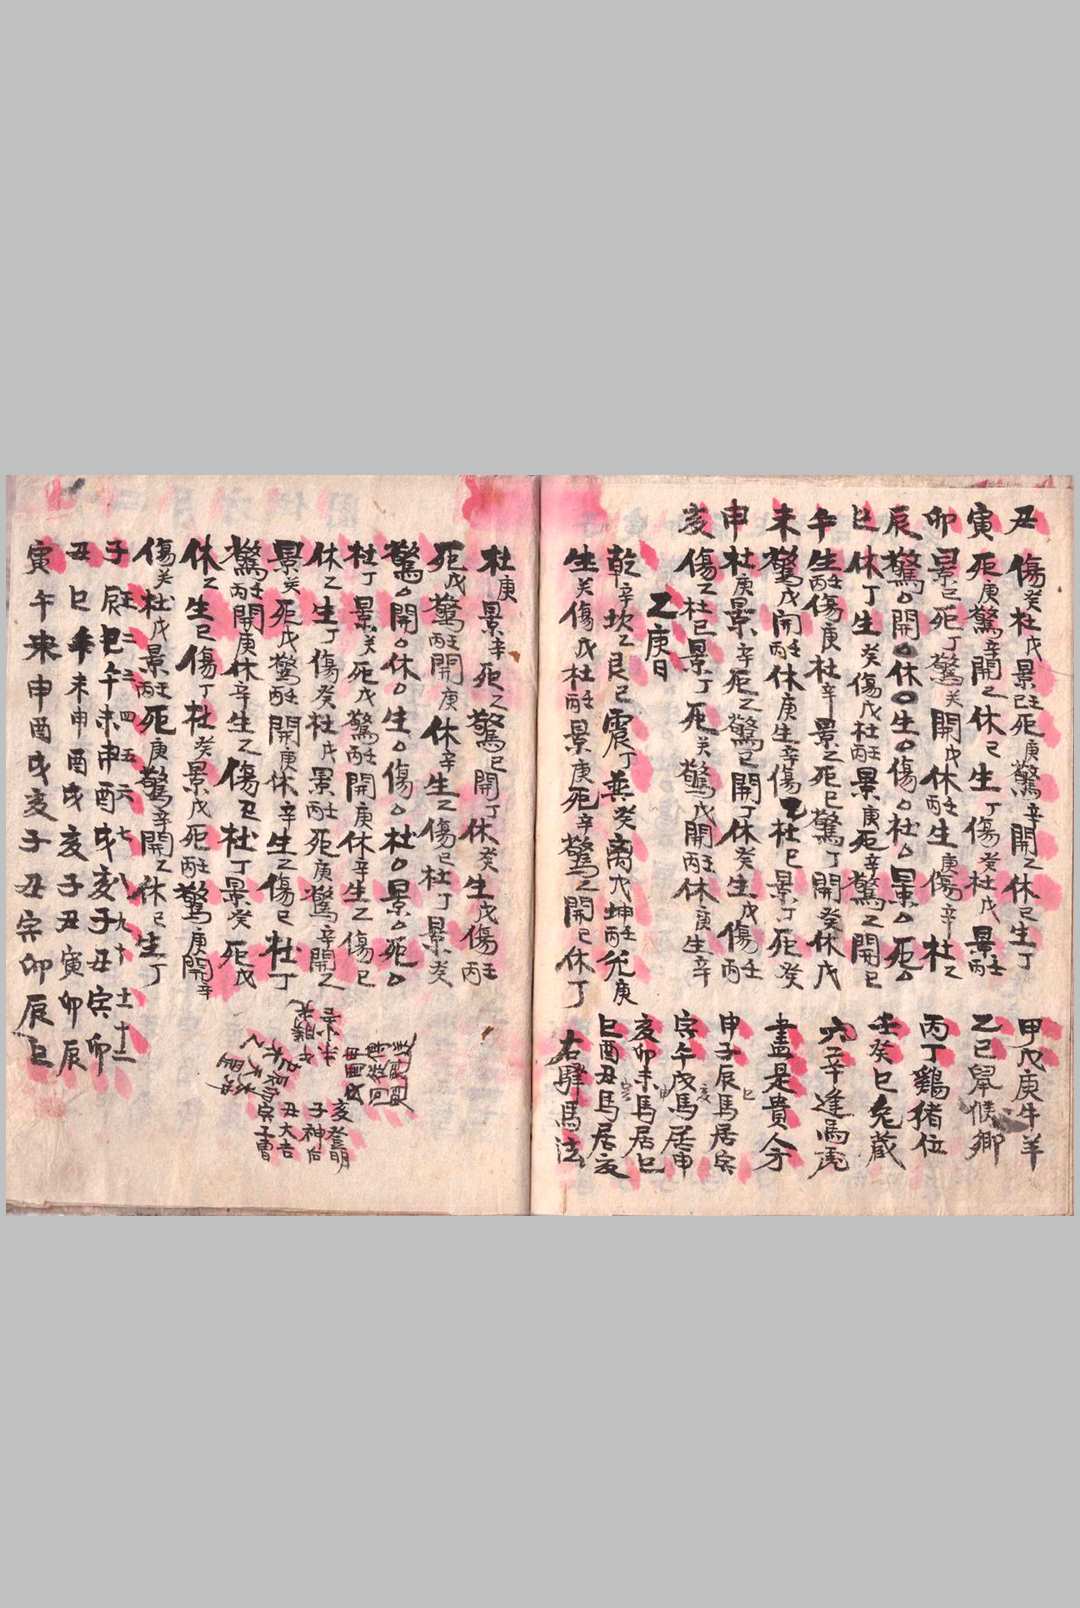 丑傷癸杜戊景己死庚驚辛開乙休己生丁
寅死庚驚辛開乙休己生丁傷癸杜戊景丙壬
卯景己死丁驚癸開戊休丙壬生庚傷辛杜乙
辰驚〇開〇休〇生〇傷〇杜〇景〇死〇
巳休丁生癸傷戊杜丙壬景庚死辛驚乙開己
午生丙壬傷庚杜辛景乙死己驚丁開癸休戊
未驚戊開丙壬休庚生辛傷乙杜己景丁死癸
申杜庚景辛死乙驚己開丁休癸生戊傷丙壬
亥傷乙杜己景丁死癸驚戊開丙壬休庚生辛
乙庚日
乾辛坎乙艮己震丁巽癸离戊坤丙壬兌庚
生癸傷戊杜丙壬景庚死辛驚乙開己休丁
甲戊庚牛羊
乙己鼠候鄉
丙丁鷄猪位
壬癸巳兔藏
六辛逢馬虎
盡是貴人方
申子辰馬居寅
寅午戌馬居申
亥卯未馬居巳
巳酉丑馬居亥
右驛馬法
杜庚景辛死乙驚己開丁休癸生戊傷丙壬
死戊驚丙壬開庚休辛生乙傷己杜丁景癸
驚〇開〇休〇生〇傷〇杜〇景〇死〇
杜丁景癸死戊驚丙壬開庚休辛生乙傷己
休乙生丁傷癸杜戊景丙壬死庚驚辛開乙
景癸死戊驚丙壬開庚休辛生乙傷己杜丁
驚丙壬開庚休辛生乙傷己杜丁景癸死戊
休乙生己傷丁杜癸景戊死丙壬驚庚開辛
傷癸杜戊景丙壬死庚驚辛開乙休己生丁
亥登明
子神后
丑大吉
寅工曹
正二三四五六七八九十十一十二
子辰巳午未申酉戌亥子丑寅卯
丑巳午未申酉戌亥子丑寅卯辰
寅午未申酉戌亥子丑寅卯辰巳